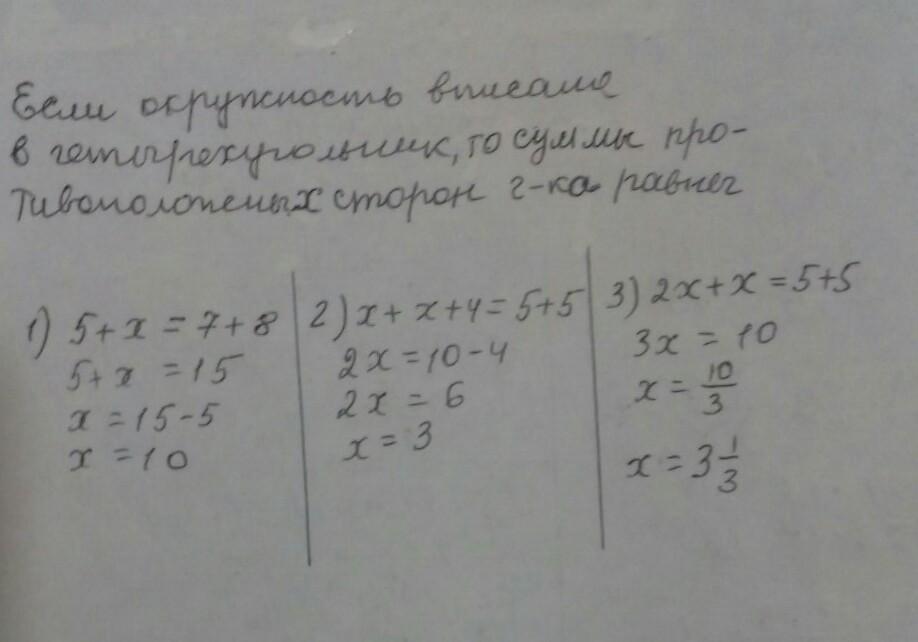 Если окружность вписана
в четырехугольник, то суммы про-
тивоположных сторон ч-ка равны
1) 5+x = 7+8
5+x = 15
x = 15-5
x = 10
2) x + x+4 = 5+5
2x = 10-4
2x = 6
x = 3
3) 2x+x = 5+5
3x = 10
x = 10/3
x = 3 1/3